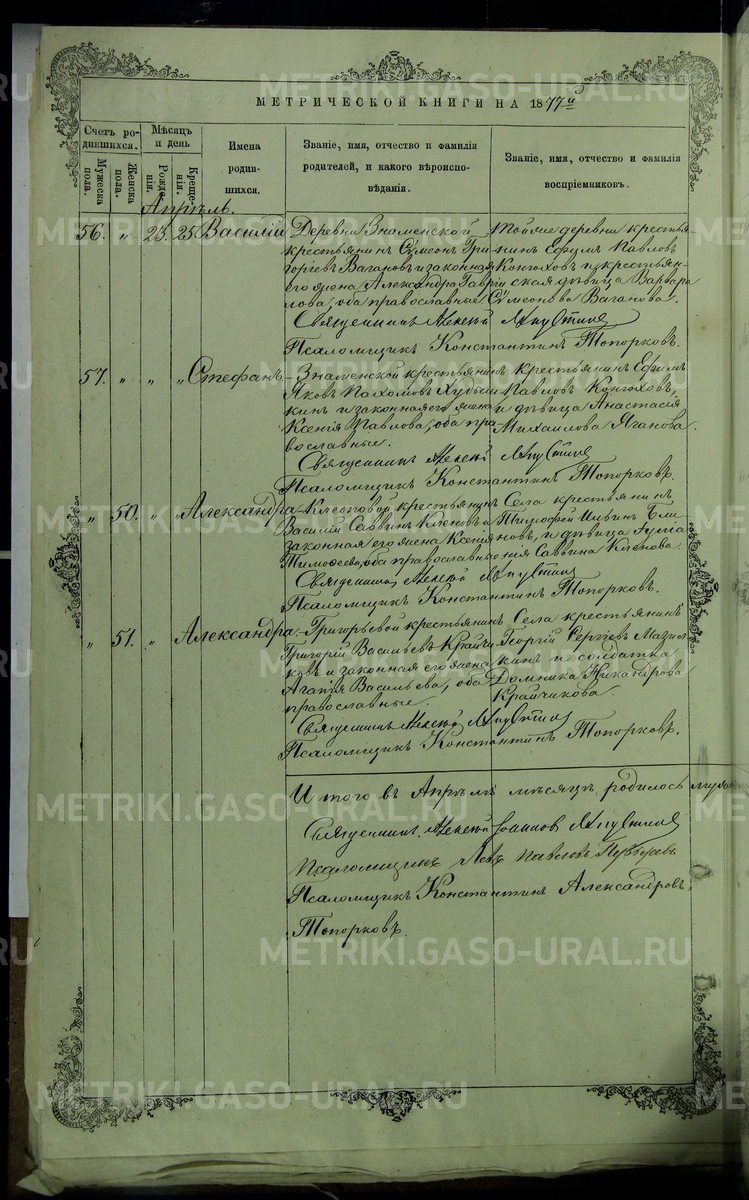 МЕТРИЧЕСКОЙ КНИГИ НА 1877й
Счетъ родившихся.
Мужеска пола.
Женска пола.
Мѣсяцъ и день
Рожденiя.
Крещенiя.
Имена родившихся.
Званiе, имя, отчество и фамилiя родителей, и какого вѣроисповѣданiя.
Званiе, имя, отчество и фамилiя воспрiемниковъ.
Апрѣль.
56. " 23. 25 Василiй
Деревни Знаменской
крестьянинъ Сѵмеонъ Гри
горьевъ Вагановъ и законная
его жена Александра Гаврiи
лова, оба православные.
Тойже деревни крестья
нинъ Ефимъ Павловъ
и крестьян
ская дѣвица Варвара
Сѵмеонова Ваганова.
Священникъ Алексѣй
Псаломщикъ Константинъ Топорковъ.
57. " " " Стефанъ
Знаменской крестьянинъ
Яковъ Пахомовъ
кинъ и законная его жена
Ксенiя Павлова, оба пра
вославные.
Крестьянинъ Ефимъ
Павловъ
и дѣвица Анастасiя
Михаилова Яганова.
Священникъ Алексѣй
Псаломщикъ Константинъ Топорковъ.
" 50. " " Александра
крестьянинъ
Василiй Саввинъ и
законная его жена Ксенiя
Тимофеева, оба православные
Села крестьянинъ
Тимофей
и дѣвица
Саввина
Священникъ Алексѣй
Псаломщикъ Константинъ Топорковъ.
" 51. " Александра
Григорьевой крестьянинъ
Григорiй Васильевъ Крайчи
ковъ и законная его жена
Агапiя Васильева, оба
православные.
Села крестьянинъ
Георгiй Сергѣевъ
кинъ и солдатка
Домника Никандрова
Крайчикова.
Священникъ Алексѣй
Псаломщикъ Константинъ Топорковъ.
Итого въ Апрѣлѣ мѣсяцѣ родилось
Священникъ Алексѣй Iоанновъ
Псаломщикъ Левъ Павловъ
Псаломщикъ Константинъ Александровъ
Топорковъ.
METRIKI.GASO-URAL.RU